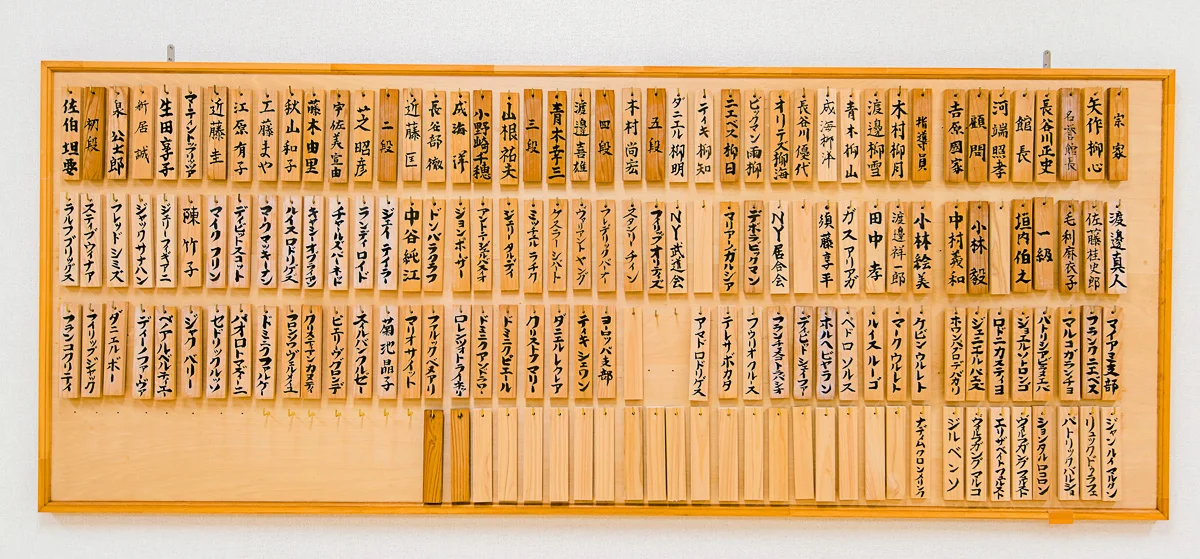 宗家
矢作柳心
名誉館長
長谷川正史
館長
河端照孝
顧問
吉原國家
指導員
木村柳月
渡邊柳雪
青木柳山
成海柳洋
長谷川優代
オリテス柳海
ビックマン雨柳
ニエベス柳日
ティキ柳知
ダニエル柳明
五段
木村尚宏
四段
渡邊喜雄
青木幸三
三段
山根祐夫
小野崎千穂
成海洋
長谷部徹
近藤匡
二段
芝昭彦
宇佐美宣由
藤木由里
秋山和子
工藤まや
江原有子
近藤圭
生田享子
新居誠
泉公士郎
初段
佐伯坦要
渡邊真人
佐藤桂史郎
毛利麻衣子
一級
垣内伯之
小林毅
中村義和
小林絵美
渡邊祥一郎
田中孝
ガスアリアガ
須藤享平
NY居合会
デボラビックマン
マリアンガルシア
NY武道会
フィリップオーティズ
スタンリーチィン
フレデリックバーナー
ウィリアントヤング
ゲスラーシバート
ミッチェルラチフ
ジェリータルディ
ジョンボーヴー
ドンバラクラフ
中谷純江
ジェイテイラー
ランディロイド
チャールズバーネッド
ルイスロリゲス
マークマッキーオン
デイビットスコット
マイクフリン
陳竹子
ジェリーフィギアニ
ジャックサナハン
フレッドシミズ
スティブウィナアー
ラルフブリッグス
マイアミ支部
フランクニエベス
マルコガランチョ
パトリシアビミエバ
ジョエルソロンゴ
ロドニカスティヨ
ジェニエルハニエ
ケビンウルレト
マークウルレト
ルイスルーゴ
ペドロソルス
ホルヘビギラン
デイビッドシェイファー
フランチネストスペシオ
フウリオクルース
テレサボカタ
アマドロドリゲス
ヨーロッパ支部
テイキシェワン
ダミエルレクレア
クリストフマリー
ドミニクピエール
ドミニクアンドラウー
ロレンツォイトライネリ
フルリックベヌアリ
マリオサイット
菊池晶子
ネイルバンクルゼー
ピエリーヴグロンデ
クリスチャンカスティ
フロランスヴィルメイユ
ドミニクファルゲー
パオロトマギーニ
セドリックルッソ
ジャクベリー
ベノアルベルディエ
ディーノファーヴァ
ダニエルボー
フィリップジャック
フランコクリティ
ジャンルイマルケン
リュックドゥラフェ
パトリックバルショ
ションタルロコロン
ウォルフガングフェルスト
エリザベイトフェルスト
ウォルフガングマルコ
ジルベンソ
ナディムクロンメリンク